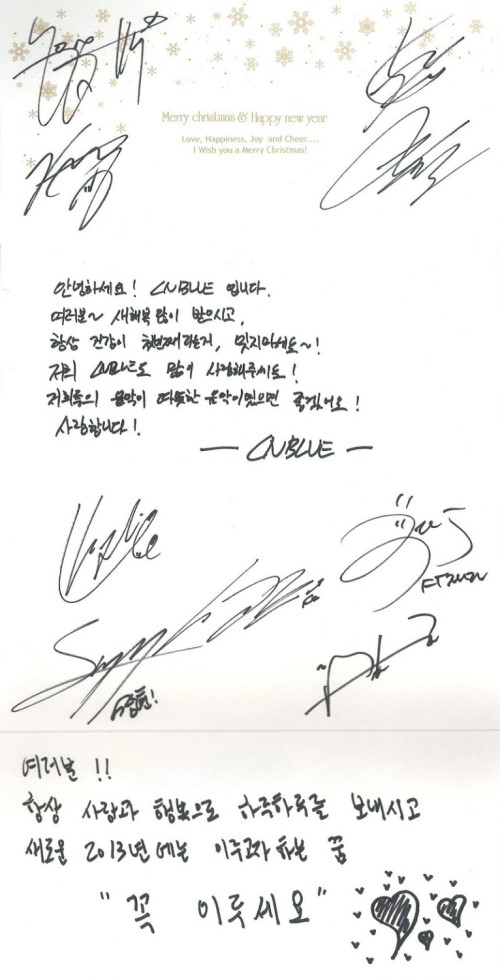 Merry christmas & Happy new year
Love, Happiness, Joy and Cheer....
I Wish you a Merry Christmas!
안녕하세요! CNBLUE 입니다.
여러분~ 새해복 많이 받으시고,
항상 건강이 첫번째라는거, 잊지마세요~!
저희 CNBLUE도 많이 사랑해주시요!
저희들의 음악이 따뜻한 음악이였으면 좋겠어요!
사랑합니다!
— CNBLUE —
FTISLAND
여러분 !!
항상 사랑과 행복으로 하루하루를 보내시고
새로운 2013년에는 이루고자 하는 꿈
" 꼭 이루세요 "